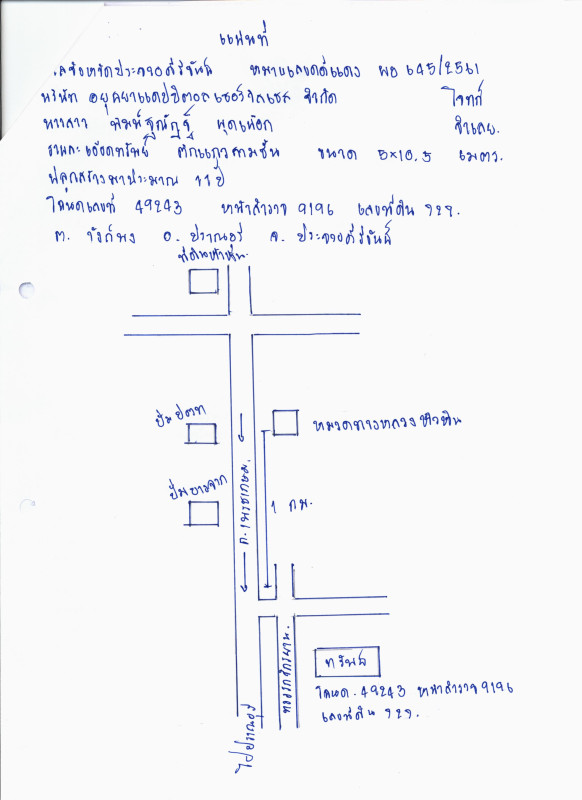 แผนที่
ศาลจังหวัดประจวบคีรีขันธ์ หมายเลขคดีแดง ผบ 645/2561
บริษัท อยุธยาแคปปิตอล เซอร์วิสเซส จำกัด โจทก์
นางสาว พิมพ์ฐณัฏฐ์ จำเลย.
รายละเอียดทรัพย์ ตึกแถวสามชั้น ขนาด 5x10.5 เมตร.
ปลูกสร้างมาประมาณ 11 ปี
โฉนดเลขที่ 49243 หน้าสำรวจ 9196 เลขที่ดิน 929.
ต. วังก์พง อ. ปราณบุรี จ. ประจวบคีรีขันธ์
ที่ดินหัวหิน.
ปั๊ม ปตท
หมวดทางหลวงหัวหิน
ปั๊มบางจาก
ถ. เพชรเกษม.
1 กม.
ทางรถจักรยาน.
ทรัพย์
โฉนด. 49243 หน้าสำรวจ 9196
เลขที่ดิน 929.
ไปปราณบุรี